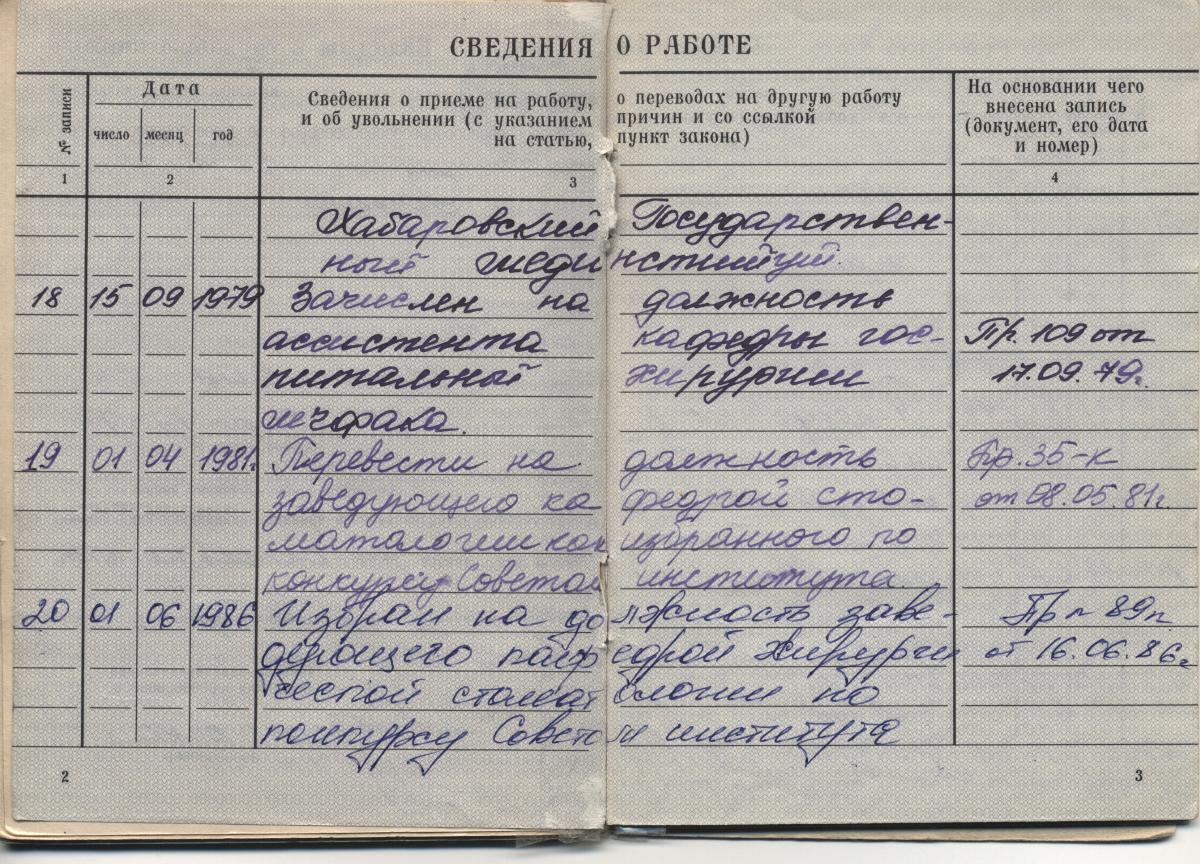 СВЕДЕНИЯ О РАБОТЕ
№ записи
Дата
число месяц год
Сведения о приеме на работу, о переводах на другую работу
и об увольнении (с указанием причин и со ссылкой
на статью, пункт закона)
На основании чего
внесена запись
(документ, его дата
и номер)
1 2 3 4
Хабаровский Государствен-
ный мединститут.
18 15 09 1979 Зачислен на должность
ассистента кафедры гос- Пр. 109 от
питальный хирургии 17.09.79г.
л/фака.
19 01 04 1981г. Перевести на должность Пр. 35-к
заведующего кафедрой сто- от 08.05.81г.
матологии как избранного по
конкурсу Советом института.
20 01 06 1986 Избран на должность заве- Пр 89
дующего кафедрой хирурги от 16.06.86г
ческой стоматологии по
конкурсу Советом института
2 3